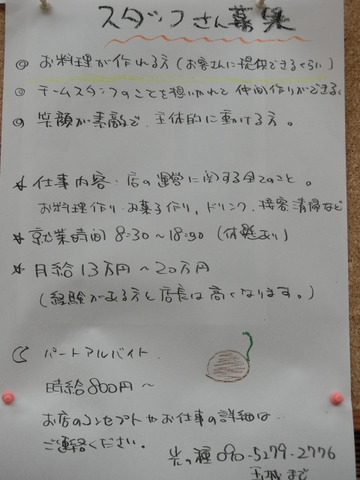 スタッフさん募集
◎ お料理が作れる方(お客さんに提供できるくらい)
◎ チームスタッフのことを想いやれて仲間作りができる
◎ 笑顔が素敵で、主体的に動ける方。
☆ 仕事内容・店の運営に関する全てのこと。
お料理作り・お菓子作り、ドリンク、接客清掃など
☆ 就業時間 8:30~18:30 (休憩あり)
☆ 月給 13万円~20万円
(経験がある方と店長は高くなります。)
パートアルバイト
時給800円~
お店のコンセプトやお仕事の詳細は
ご連絡ください。
の種 090-5279-2776
玉城まで